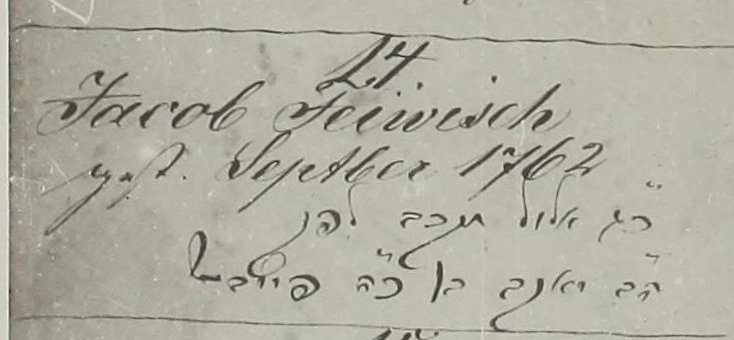 24
Jacob Feiwisch
gest. Septber 1762
כ״ג אלול תקכב לפק
ה״ב יאקב בן כ״ה פייבש